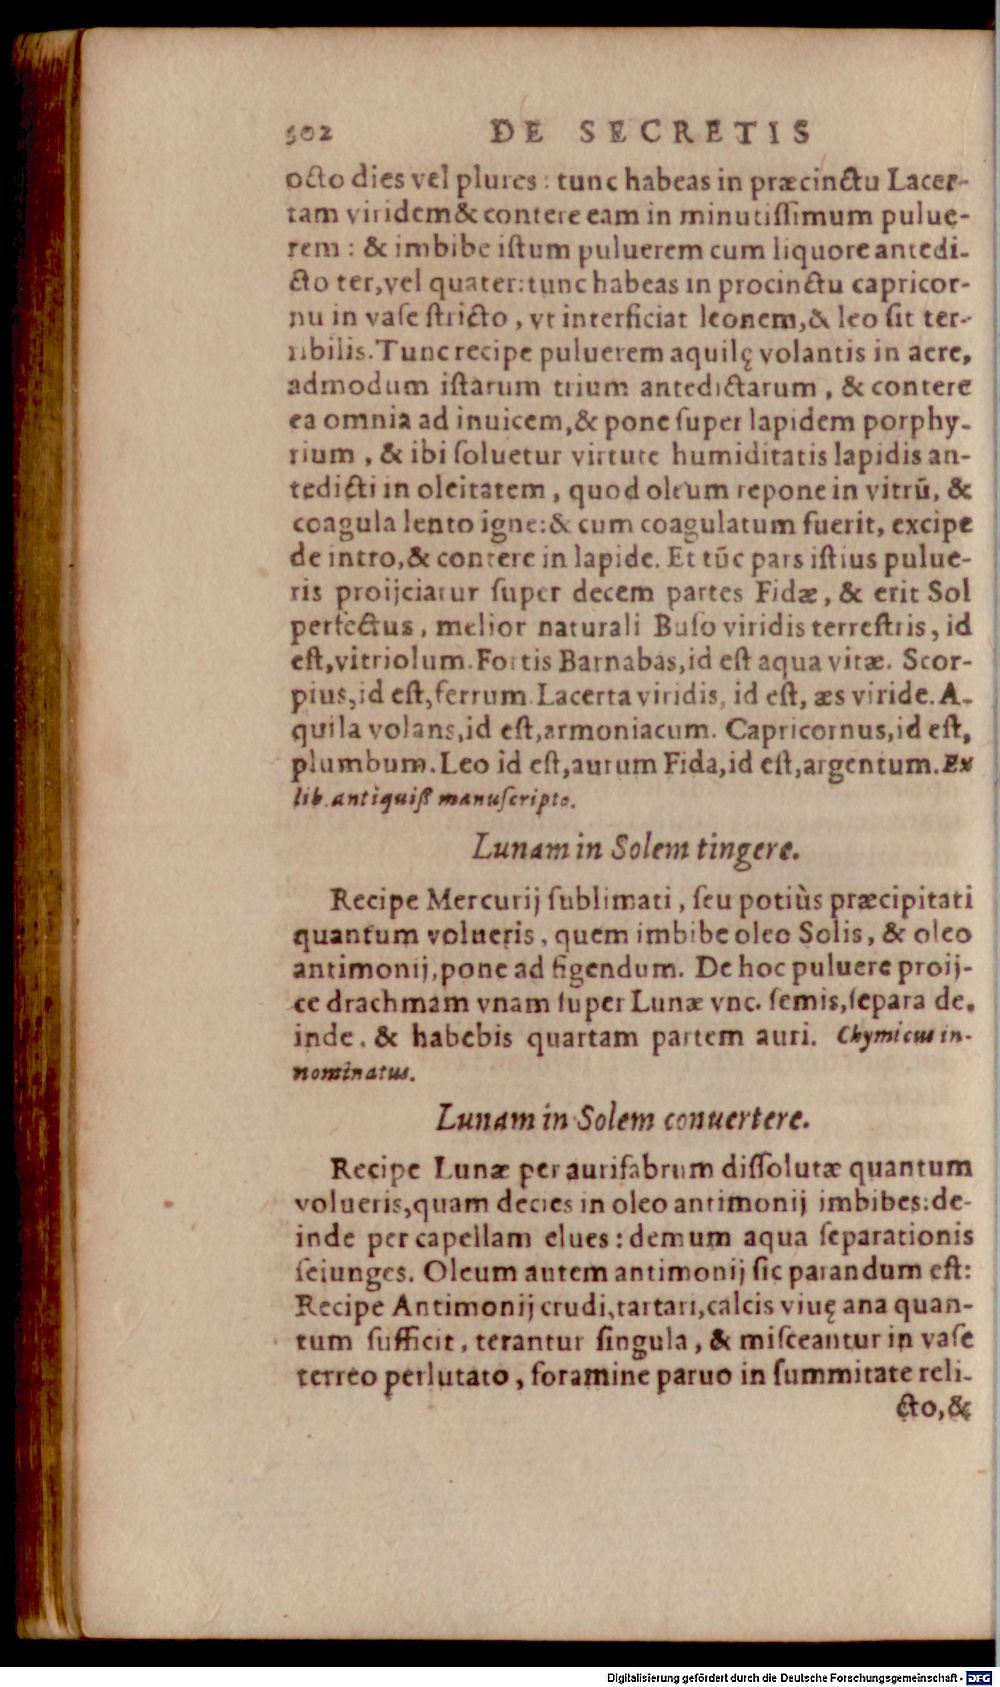 502 DE SECRETIS
octo dies vel plures: tunc habeas in præcinctu Lacer-
tam viridem & contere eam in minutiſſimum pulue-
rem: & imbibe iſtum puluerem cum liquore antedi-
cto ter, vel quater: tunc habeas in procinctu capricor-
nu in vaſe ſtricto, vt interficiat leonem, & leo ſit ter-
ribilis. Tunc recipe puluerem aquilę volantis in aere,
admodum iſtarum trium antedictarum, & contere
ea omnia ad inuicem, & pone ſuper lapidem porphy-
rium, & ibi ſoluetur virtute humiditatis lapidis an-
tedicti in oleitatem, quod oleum repone in vitrũ, &
coagula lento igne: & cum coagulatum fuerit, excipe
de intro, & contere in lapide. Et tũc pars iſtius pulue-
ris proijciatur ſuper decem partes Fidæ, & erit Sol
perfectus, melior naturali Bufo viridis terreſtris, id
eſt, vitriolum. Fortis Barnabas, id eſt aqua vitæ. Scor-
pius, id eſt, ferrum. Lacerta viridis, id eſt, æs viride. A-
quila volans, id eſt, armoniacum. Capricornus, id eſt,
plumbum. Leo id eſt, aurum Fida, id eſt, argentum. Ex
lib. antiquiſſ manuſcripto.
Lunam in Solem tingere.
Recipe Mercurij ſublimati, ſeu potiùs præcipitati
quantum volueris, quem imbibe oleo Solis, & oleo
antimonij, pone ad figendum. De hoc puluere proij-
ce drachmam vnam ſuper Lunæ vnc. ſemis, ſepara de-
inde. & habebis quartam partem auri. Chymicus in-
nominatus.
Lunam in Solem conuertere.
Recipe Lunæ per aurifabrum diſſolutæ quantum
volueris, quam decies in oleo antimonij imbibes: de-
inde per capellam elues: demum aqua ſeparationis
ſeiunges. Oleum autem antimonij ſic parandum eſt:
Recipe Antimonij crudi, tartari, calcis viuę ana quan-
tum ſufficit, terantur ſingula, & miſceantur in vaſe
terreo perlutato, foramine paruo in ſummitate reli-
cto, &
Digitalisierung gefördert durch die Deutsche Forschungsgemeinschaft - DFG